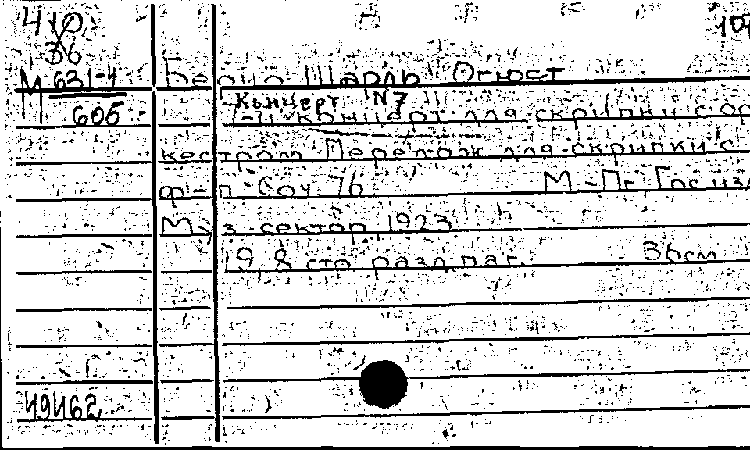 410
36
М 631-4
605
Берио Шарль Огюст
Концерт N 7
7-й концерт для скрипки с ор
кестром Перелож для скрипки с
ф-п Соч 76 М-Пг Гос из
Муз сектор 1923
19, 8 стр разд паг. 36см
49462